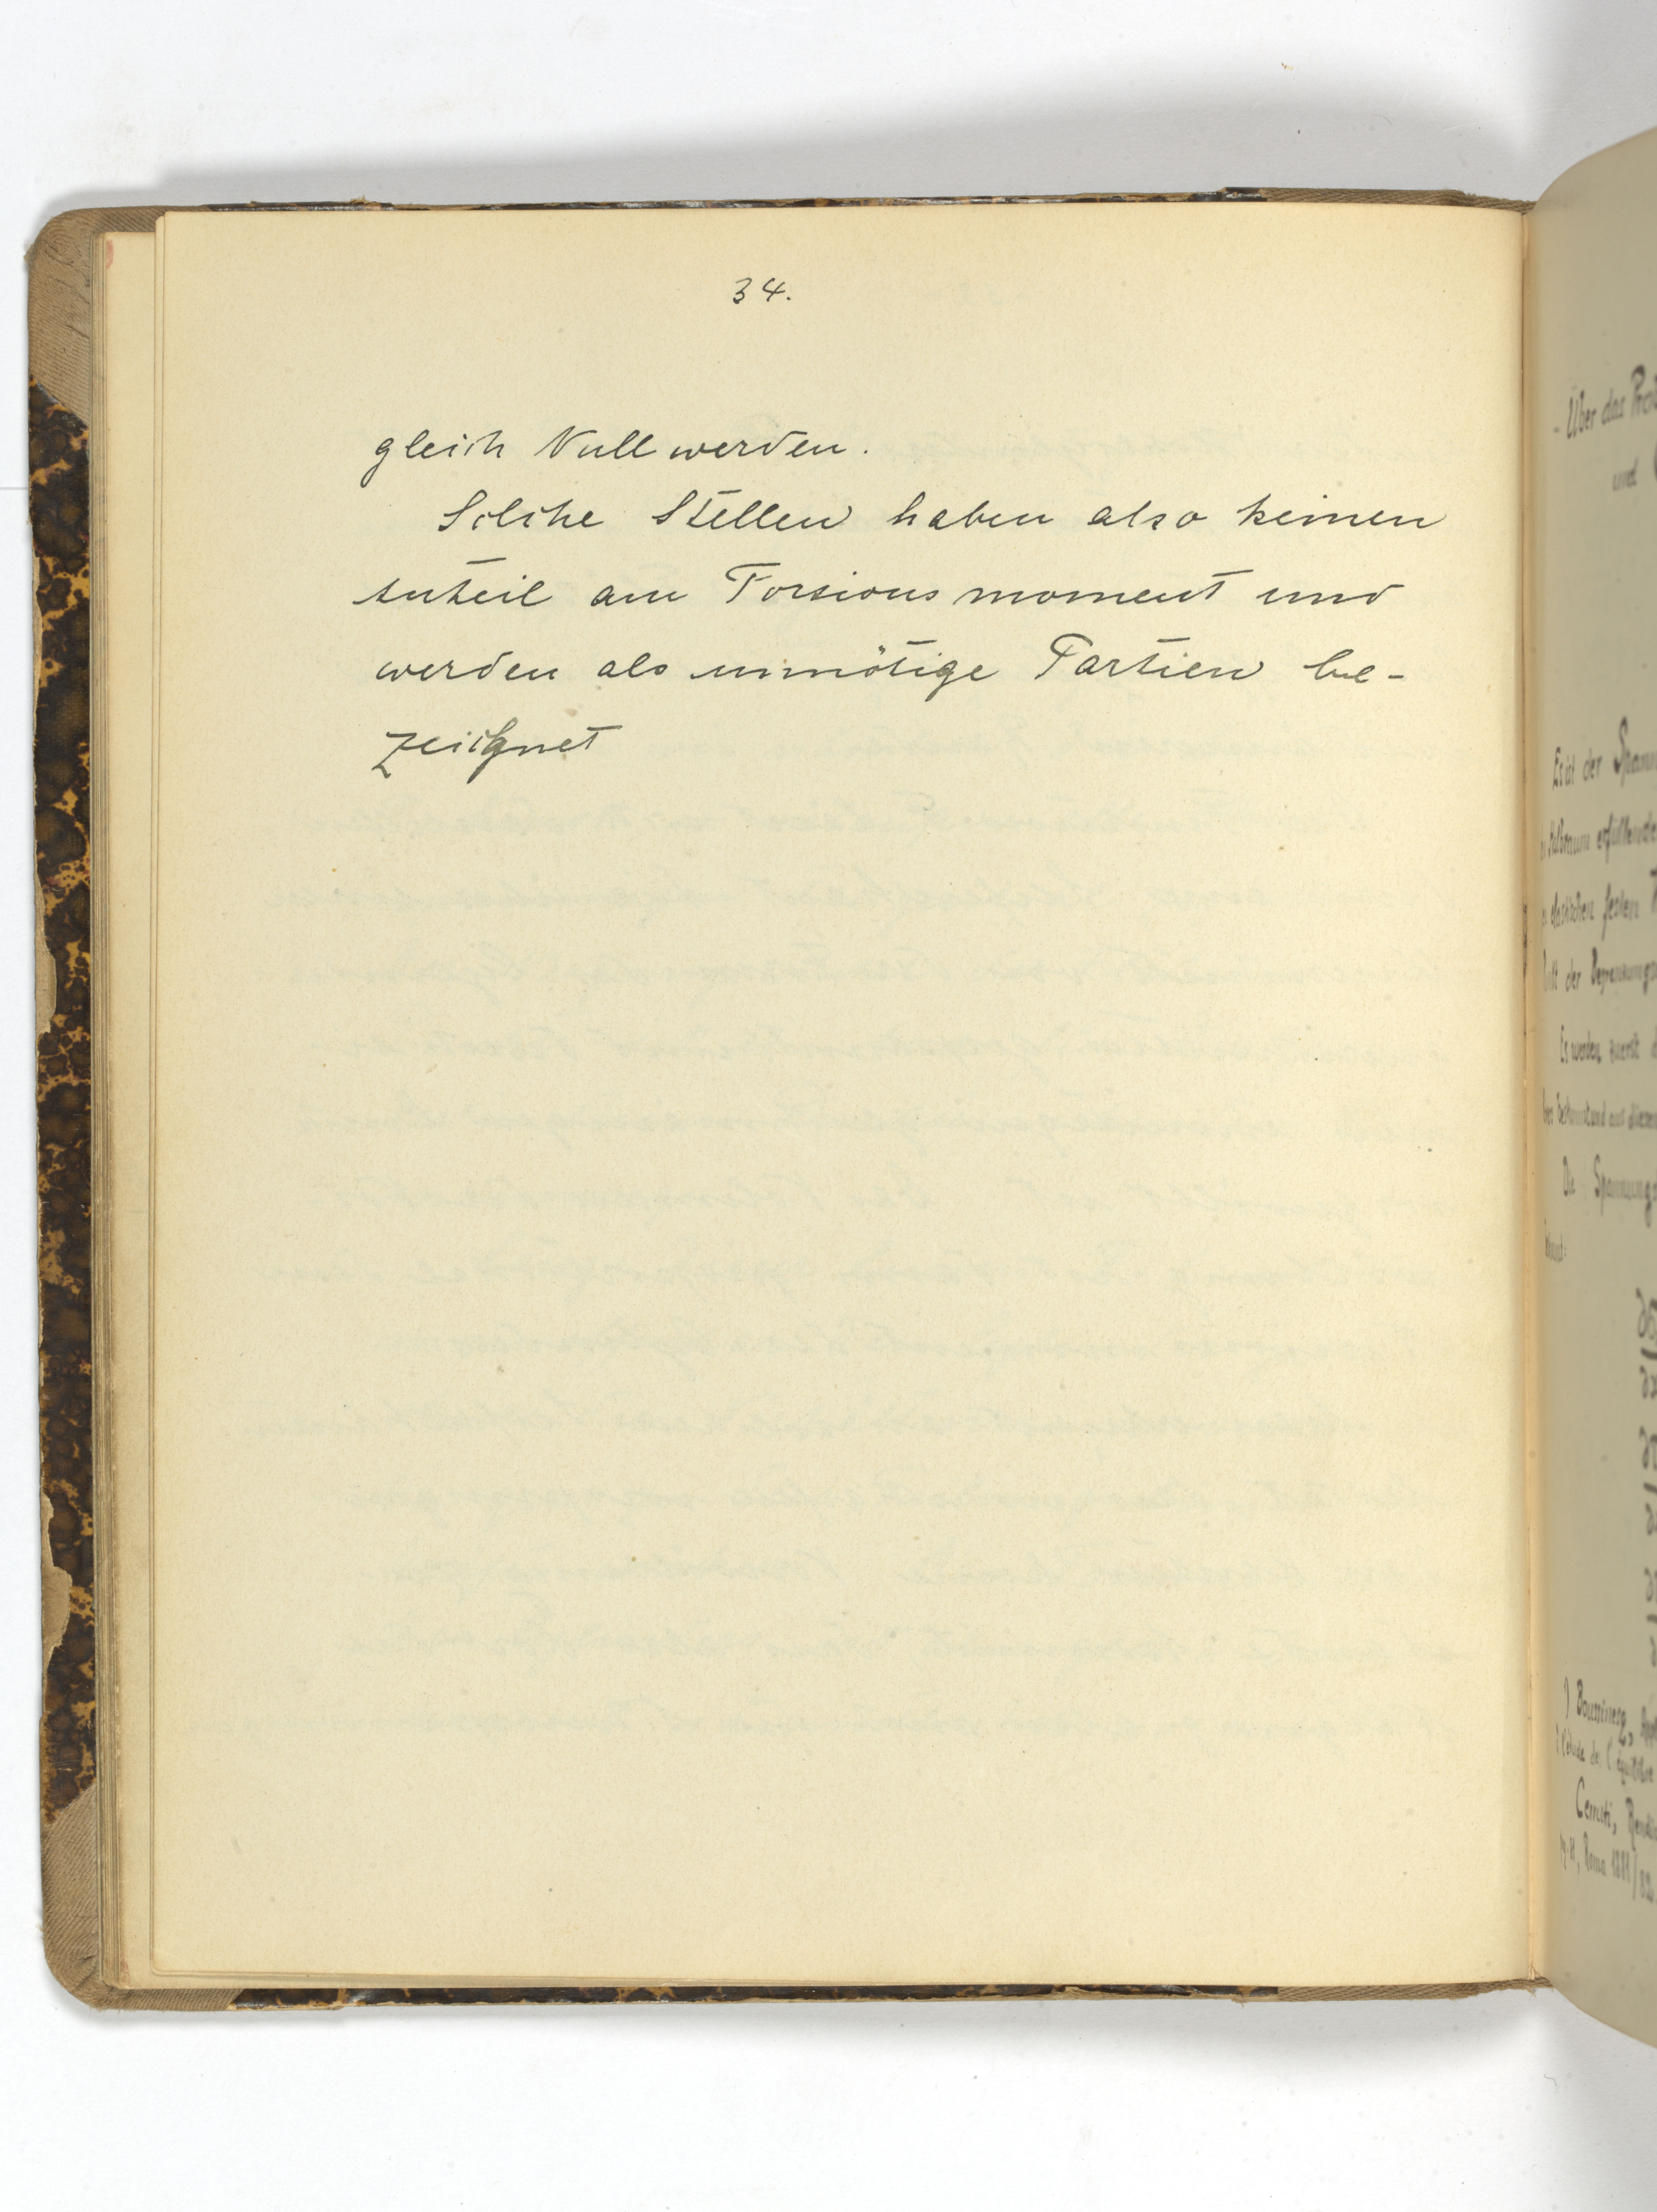 34.
gleich Null werden.
Solche Stellen haben also keinen
Anteil am Torsionsmoment und
werden als unnötige Partien be-
zeichnet
Über das
und
Es ist der
erfüllende
elastischen festen
der
Es werden zuerst
und aus diesen
Die
1) Boussinesq,
l'étude de l'équilibre
Cerruti,
Roma 1881/82